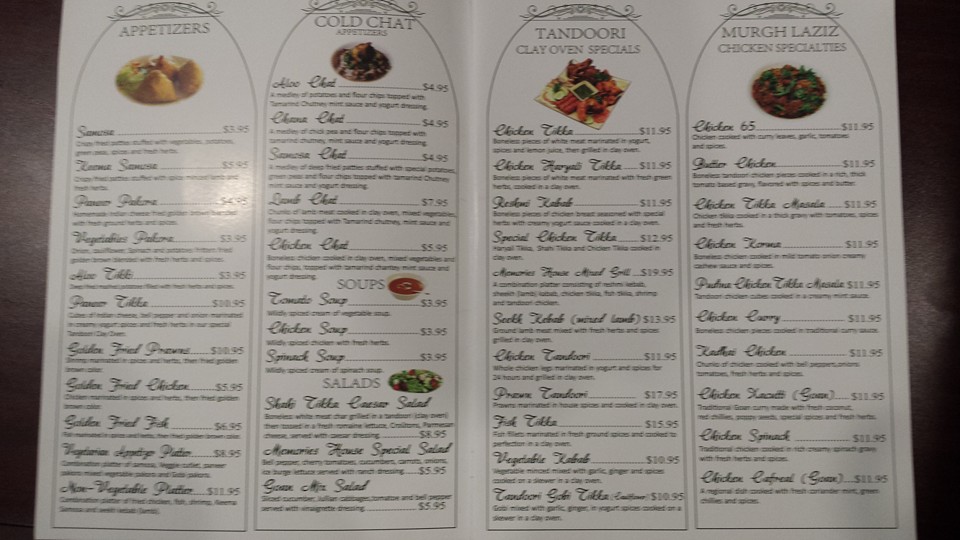 APPETIZERS
Samosa $3.95
Crispy fried patties stuffed with vegetables, potatoes,
green peas, spices and fresh herbs.
Keema Samosa $5.95
Crispy fried patties stuffed with spice minced lamb and
fresh herbs.
Paneer Pakora $4.95
Homemade Indian cheese fried golden brown blended
with fresh ground herbs and spices.
Vegetables Pakora $3.95
Onion, cauliflower, Spinach and potatoes fritters fried
golden brown blended with fresh herbs and spices.
Aloo Tikki $3.95
Deep fried mashed potatoes filled with fresh herbs and spices.
Paneer Tikka $10.95
Cubes of Indian cheese, bell pepper and onion marinated
in creamy yogurt spices and fresh herbs in our special
Tandoori Clay Oven.
Golden Fried Prawns $10.95
Shrimp marinated in spices and herbs, then fried golden
brown color.
Golden Fried Chicken $5.95
Chicken marinated in spices and herbs, then fried golden
brown color.
Golden Fried Fish $6.95
Fish marinated in spices and herbs, then fried golden brown color.
Vegetarian Appetizer Platter $8.95
Combination platter of samosa, Veggie cutlet, paneer
pakora, vegetable pakora and Gobi pakora.
Non-Vegetable Platter $11.95
Combination platter of fried chicken, fish, shrimp, Keema
Samosa and seekh kebab (lamb).
COLD CHAT
APPETIZERS
Aloo Chat $4.95
A medley of potatoes and flour chips topped with
Tamarind Chutney mint sauce and yogurt dressing.
Chana Chat $4.95
A medley of chick pea and flour chips topped with
tamarind chutney, mint sauce and yogurt dressing.
Samosa Chat $4.95
A medley of deep fried patties stuffed with special potatoes,
green peas and flour chips topped with tamarind Chutney
mint sauce and yogurt dressing.
Lamb Chat $7.95
Chunks of lamb meat cooked in clay oven, mixed vegetables,
flour chips topped with Tamarind chutney, mint sauce and
yogurt dressing.
Chicken Chat $5.95
Boneless chicken cooked in clay oven, mixed vegetables and
flour chips, topped with tamarind chantey mint sauce and
yogurt dressing.
SOUPS
Tomato Soup $3.95
Mildly spiced cream of vegetable soup.
Chicken Soup $3.95
Mildly spiced chicken with fresh herbs.
Spinach Soup $3.95
Mildly spiced cream of spinach soup.
SALADS
Shahi Tikka Caesar Salad
Boneless white meat char grilled in a tandoori (clay oven)
then tossed in a fresh romaine lettuce, Croutons, Parmesan
cheese, served with caesar dressing. $8.95
Memories House Special Salad
Bell pepper, cherry tomatoes, cucumbers, carrots, onions,
ice burge lettuce served with ranch dressing. $5.95
Goan Mix Salad
Sliced cucumber, Jullian cabbages, tomatoe and bell pepper
served with vinaigrette dressing. $5.95
TANDOORI
CLAY OVEN SPECIALS
Chicken Tikka $11.95
Boneless pieces of white meat marinated in yogurt,
spices and lemon juice, then grilled in clay oven.
Chicken Haryali Tikka $11.95
Boneless pieces of white meat marinated with fresh green
herbs, cooked in a clay oven.
Reshmi Kabab $11.95
Boneless pieces of chicken breast seasoned with special
herbs with creamy yogurt sauce cooked in a clay oven.
Special Chicken Tikka $12.95
Haryali Tikka, Shahi Tikka and Chicken Tikka cooked in
clay oven.
Memories House Mixed Grill $19.95
A combination platter consisting of reshmi kebab,
sheekh (lamb) kabab, chicken tikka, fish tikka, shrimp
and tandoori chicken.
Seekh Kebab (mixed lamb) $13.95
Ground lamb meat mixed with fresh herbs and spices
grilled in clay oven.
Chicken Tandoori $11.95
Whole chicken legs marinated in yogurt and spices for
24 hours and grilled in clay oven.
Prawn Tandoori $17.95
Prawns marinated in house spices and cooked in clay oven.
Fish Tikka $15.95
Fish fillets marinated in fresh ground spices and cooked to
perfection in a clay oven.
Vegetable Kabab $10.95
Vegetable minced mixed with garlic, ginger and spices
cooked on a skewer in a clay oven.
Tandoori Gobi Tikka (Cauliflower) $10.95
Gobi mixed with garlic, ginger, in yogurt spices cooked on a
skewer in a clay oven.
MURGH LAZIZ
CHICKEN SPECIALTIES
Chicken 65 $11.95
Chicken cooked with curry leaves, garlic, tomatoes
and spices.
Butter Chicken $11.95
Boneless tandoori chicken pieces cooked in a rich, thick
tomato based gravy, flavored with spices and butter.
Chicken Tikka Masala $11.95
Chicken tikka cooked in a thick gravy with tomatoes, spices
and fresh herbs.
Chicken Korma $11.95
Boneless chicken cooked in mild tomato onion creamy
cashew sauce and spices.
Pudina Chicken Tikka Masala $11.95
Tandoori chicken cubes cooked in a creamy mint sauce.
Chicken Curry $11.95
Boneless chicken pieces cooked in traditional curry sauce.
Kadhai Chicken $11.95
Chunks of chicken cooked with bell peppers, onions
tomatoes, fresh herbs and spices.
Chicken Xacutti (Goan) $11.95
Traditional Goan curry made with fresh coconut,
red chillies, poppy seeds, special spices and fresh herbs.
Chicken Spinach $11.95
Traditional chicken cooked in rich creamy spinach gravy
with fresh herbs and spices.
Chicken Cafreal (Goan) $11.95
A regional dish cooked with fresh coriander mint, green
chillies and spices.